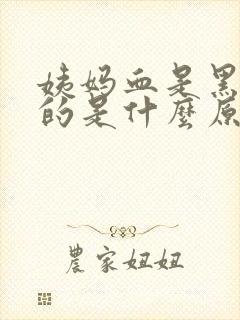 姨妈血是黑
的是什麼原
農家妞妞